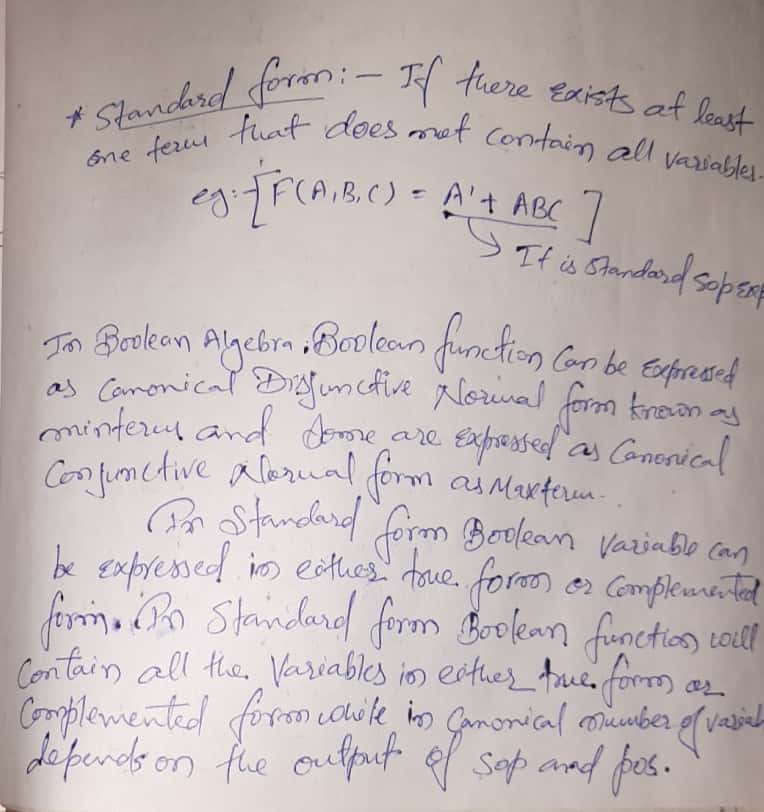 * Standard form:- If there exists at least
one term that does not contain all variables.
eg:-[F(A,B,C) = A'+ ABC]
→ It is Standard SOP Exp
In Boolean Algebra, Boolean function can be Expressed
as Canonical Disjunctive Normal form known as
minterm and some are expressed as Canonical
Conjunctive Normal form as Maxterm.
In Standard form Boolean variable can
be expressed in either true form or complemented
form. In Standard form Boolean function will
Contain all the Variables in either true form or
Complemented form while in Canonical number of variab
depends on the output of SOP and pos.